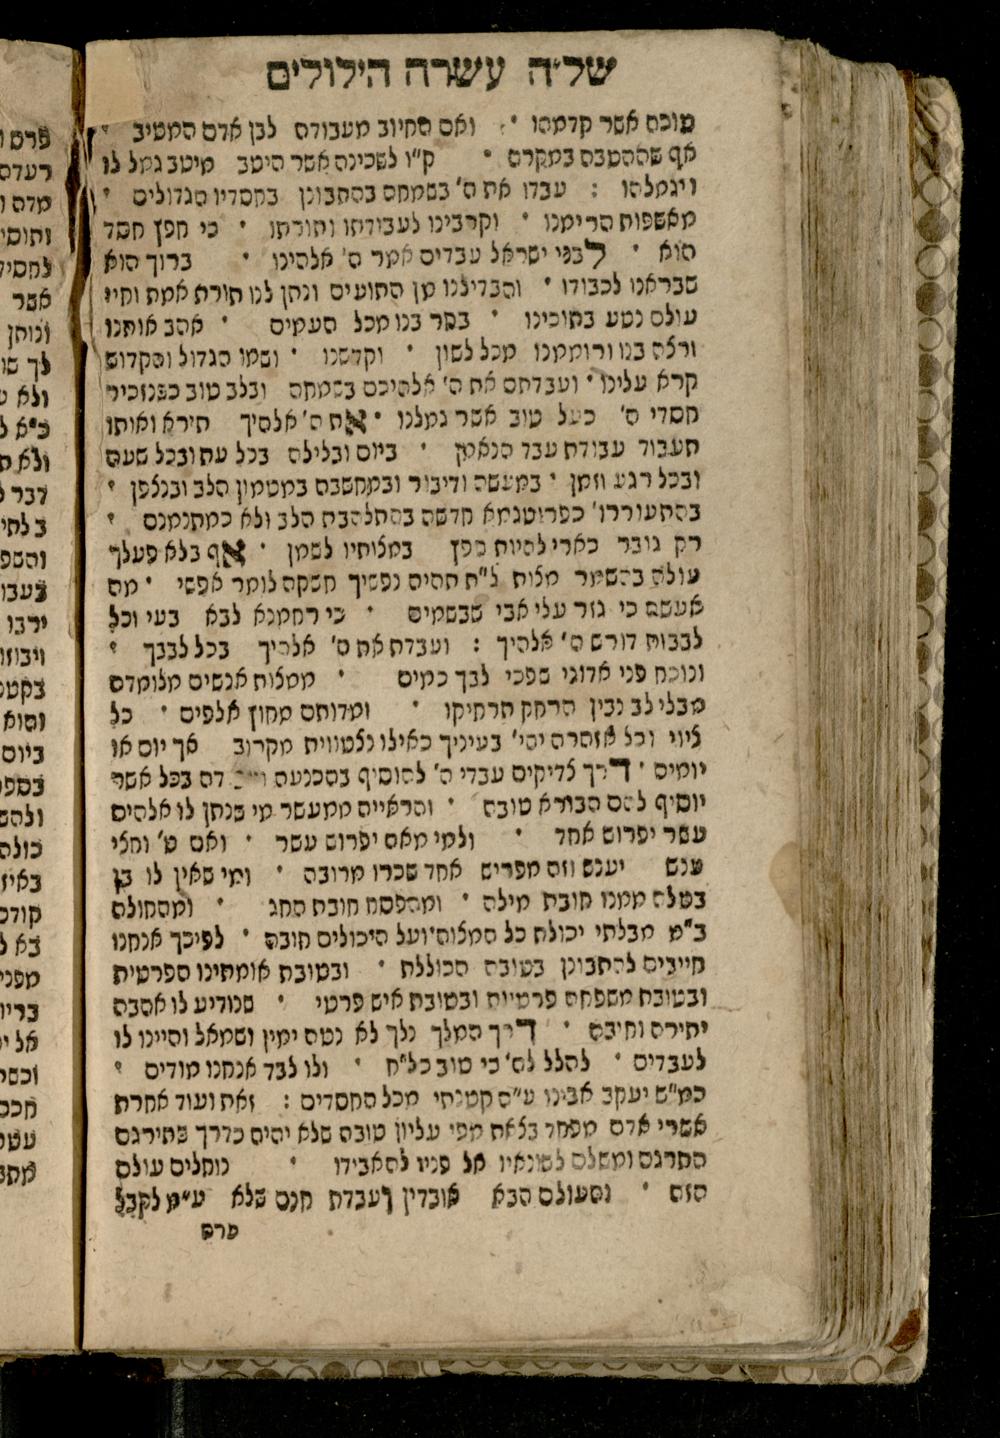 של״ה עשרה הילולים
טובה אשר קדמהו · ואם החיוב מעבודת לבן אדם המטיב
אף שההטבה במקרה · ק״ו לשכינה אשר היטב מיטב גמל לו
ויגמלהו : עבדו את ה׳ בשמחה בהתבונן בחסדיו הגדולים
מאשפות הרימנו · וקרבינו לעבודתו ותורתו · כי חפץ חסד
הוא · לבני ישראל עבדים אמר ה׳ אלהינו · ברוך הוא
שבראנו לכבודו · והבדילנו מן התועים ונתן לנו תורת אמת וחיי
עולם נטע בתוכינו · בחר בנו מכל העמים · אהב אותנו
ורצה בנו ורוממנו מכל לשון · וקדשנו · ושמו הגדול והקדוש
קרא עלינו · ועבדתם את ה׳ אלהיכם בשמחה ובלב טוב כשנזכיר
חסדי ה׳ כעל טוב אשר גמלנו · את ה׳ אלהיך תירא ואותו
תעבוד עבודת עבד הנאמן · ביום ובלילה בכל עת ובכל שעה
ובכל רגע וזמן · במעשה ודיבור ובמחשבה במטמון הלב ובנצפן
בהתעוררו׳ כפרוטגמא חדשה בהתלהבת הלב ולא כמתנמנם
רק גובר כארי להיות חפץ במצותיו לשמן · אף בלא פעלך
עולה בהשמר מצות ל״ת תהיה נפשיך חשקה לומר אפשי · מה
אעשה כי גזר עלי אבי שבשמים · כי רחמנא לבא בעי וכל
לבבות דורש ה׳ אלהיך : ועבדת את ה׳ אלהיך בכל לבבך
ונוכח פני אדוני שפכי לבך כמים · ממצות אנשים מלומדה
מבלי לב נבין הרחק תרחיקו · ומדותם מחוץ אלפים · כל
ציוי וכל אזהרה יהי׳ בעיניך כאילו נצטווית מקרוב אך יום או
יומים · דרך צדיקים עבדי ה׳ להוסיף בהכנעה דם בכל אשר
יוסיף להם הבורא טובה · והראייה ממעשר מי שנתן לו אלהים
עשר יפרוש אחד · ולמי מאה יפרוש עשר · ואם ט׳ וחצי
ענש יענש וזה מפריש אחד שכרו מרובה · ומי שאין לו בן
בטלה ממנו חובת מילה · ומהפסח חובת החג · ומהחולה
ב״מ מבלתי יכולת כל המצות ועל היכולים חובה · לפיכך אנחנו
חייבים להתבונן בטובה הכוללת · ובטובת אומתינו הפרטית
ובטובת משפחה פרטיות ובטובת איש פרטי · שנודיע לו אהבה
יתירה וחיבה · דרך המלך נלך לא נטה ימין ושמאל והיינו לו
לעבדים · להלל לה׳ כי טוב כל״ח · ולו לבד אנחנו מודים
כמ״ש יעקב אבינו ע״ה קטנתי מכל החסדים : זאת ועוד אחרת
אשרי אדם מפחד בצאת מפי עליון טובה שלא יהיה כדרך בתירגם
התרגם ומשלם לשונאיו אל פניו להאבידו · נוחלים עולם
הזה · ומעולם הבא אובדין ועבדת חנם שלא ע״מ לקבל
פרס